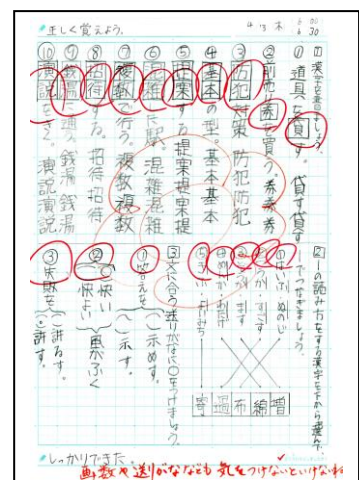 正しく覚えよう。
4/13 木 6:00 6:30
① 漢字を書きましょう。
① 道具を貸す。 貸す貸す
② 前売り券を買う。 券券券
③ 防犯対策 防犯防犯
④ 基本の型。 基本基本
⑤ 提案する 提案提案
⑥ 混雑 駅。 混雑混雑
⑦ 複数で行う。 複数複数
⑧ 招待する。 招待招待
⑨ 銭湯に通う。 銭湯銭湯
⑩ 演説を 演説演説
② ーの読み方をする漢字を下から選んで、ーでつなぎましょう。
増 綿 布 過 寄
③ 文に合う送りがなに○をつけましょう。
① 答えを 示めす。 示す。
② 快い 快よい 風がふく
③ 失敗を 許るす。 許す。
しっかりできた。
画数や送りがなども気をつけないといけないね